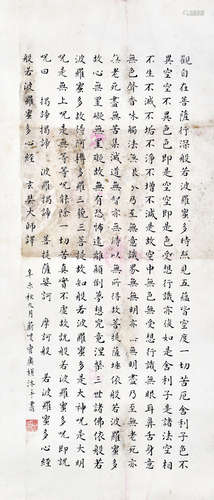 觀自在菩薩行深般若波羅蜜多時照見五蘊皆空度一切苦厄舍利子色不
異空空不異色色即是空空即是色受想行識亦復如是舍利子是諸法空相
不生不滅不垢不淨不增不減是故空中無色無受想行識無眼耳鼻舌身意
無色聲香味觸法無眼界乃至無意識界無無明亦無無明盡乃至無老死亦
無老死盡無苦集滅道無智亦無得以無所得故菩提薩埵依般若波羅蜜多
故心無罣礙無罣礙故無有恐怖遠離顛倒夢想究竟涅槃三世諸佛依般若
波羅蜜多故得阿耨多羅三藐三菩提故知般若波羅蜜多是大神呪是大明
呪是無上呪是無等等呪能除一切苦真實不虛故說般若波羅蜜多呪即說
呪曰 揭諦揭諦 波羅揭諦 波羅僧揭諦 菩提薩婆訶 摩訶般若波羅蜜多心經
般若波羅蜜多心經 玄奘大師譯
辛未秋九月 沐手書